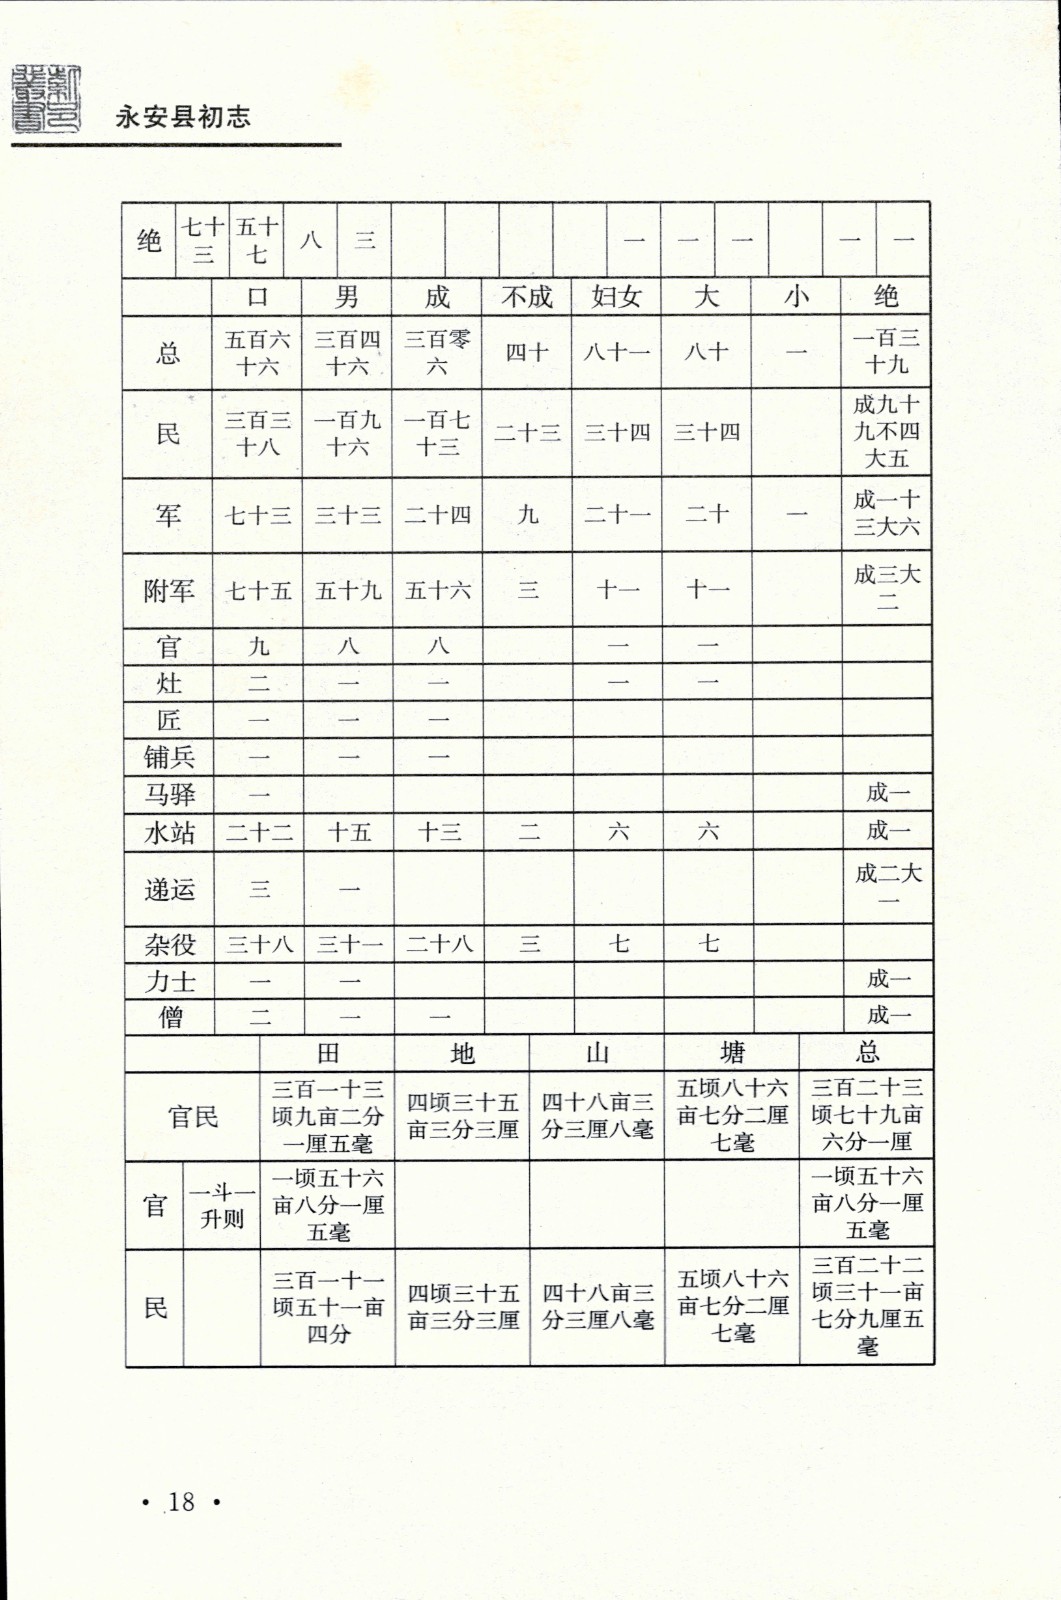 紫邑叢書
永安县初志
绝 七十三 五十七 八 三 一 一 一 一 一
口 男 成 不成 妇女 大 小 绝
总 五百六十六 三百四十六 三百零六 四十 八十一 八十 一 一百三十九
民 三百三十八 一百九十六 一百七十三 二十三 三十四 三十四 成九十九不四大五
军 七十三 三十三 二十四 九 二十一 二十 一 成一十三大六
附军 七十五 五十九 五十六 三 十一 十一 成三大二
官 九 八 八 一 一
灶 二 一 一 一 一
匠 一 一 一
铺兵 一 一 一
马驿 一 成一
水站 二十二 十五 十三 二 六 六 成一
递运 三 一 成二大一
杂役 三十八 三十一 二十八 三 七 七
力士 一 一 成一
僧 二 一 一 成一
田 地 山 塘 总
官民 三百一十三顷九亩二分一厘五毫 四顷三十五亩三分三厘 四十八亩三分三厘八毫 五顷八十六亩七分二厘七毫 三百二十三顷七十九亩六分一厘
官 一斗一升则 一顷五十六亩八分一厘五毫 一顷五十六亩八分一厘五毫
民 三百一十一顷五十一亩四分 四顷三十五亩三分三厘 四十八亩三分三厘八毫 五顷八十六亩七分二厘七毫 三百二十二顷三十一亩七分九厘五毫
• 18 •